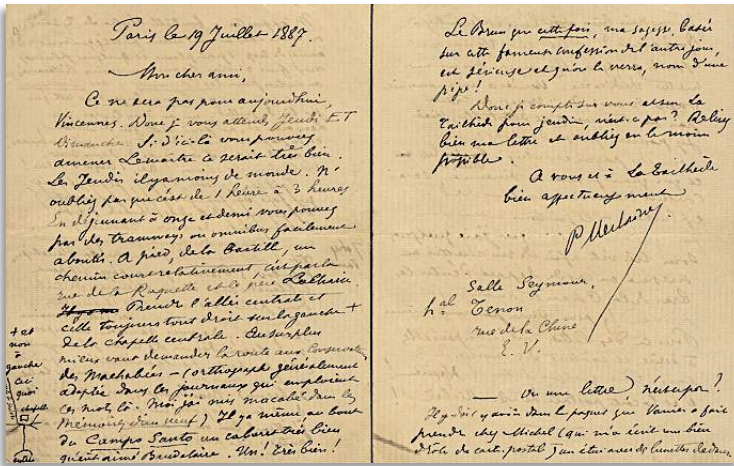 Paris le 19 Juillet 1887.
Mon cher ami,
Ce ne sera pas pour aujourdhui,
Vincennes. Donc je vous attends Jeudi ET
Dimanche. Si d'ici-là vous pouvez
amener Lemaitre ce serait très bien.
Les Jeudis il y a moins de monde. N'
oubliez pas que c'est de 1 heure à 3 heures
En déjeunant à onze et demi vous pouvez
par des tramways ou omnibus facilement
aboutir. A pied, de la Bastille, un
chemin court relativement, c'est par la
rue de la Roquette et le père Lachaise.
Prendre l'allée centrale et
celle toujours tout droit sur la gauche +
de la chapelle centrale. Au surplus
mieux vaut demander la route aux
des Machabées - (orthographe généralement
adoptée dans les journaux qui emploient
ces mots là. Moi j'ai mis macabé dans les
Mémoires d'un veuf) Il y a même au bout
du Campo Santo un cabaret très bien
qu'eut aimé Baudelaire. Un! très bien!
+ et
non
à
gauche
chapelle
entrée
que cette fois, ma sagesse, basée
sur cette fameuse confession de l'autre jour,
est sérieuse et qu'on le verra, nom d'une
pipe!
Donc je compte sur vous et sur La
Tailhède pour jeudi, n'est-ce pas? Relisez
bien ma lettre et oubliez en le moins
possible.
A vous et à La Tailhède
bien affectueusement
P. Verlaine
Salle Seymour,
h.al Tenon
rue de la Chine
E. V.
ou une lettre) n'est-ce pas?
Il y doit y avoir dans le paquet que Vanier a fait
prendre chez Michel (qui m'a écrit un bien
drôle de carte-postal) un étui avec des lunettes dedans.